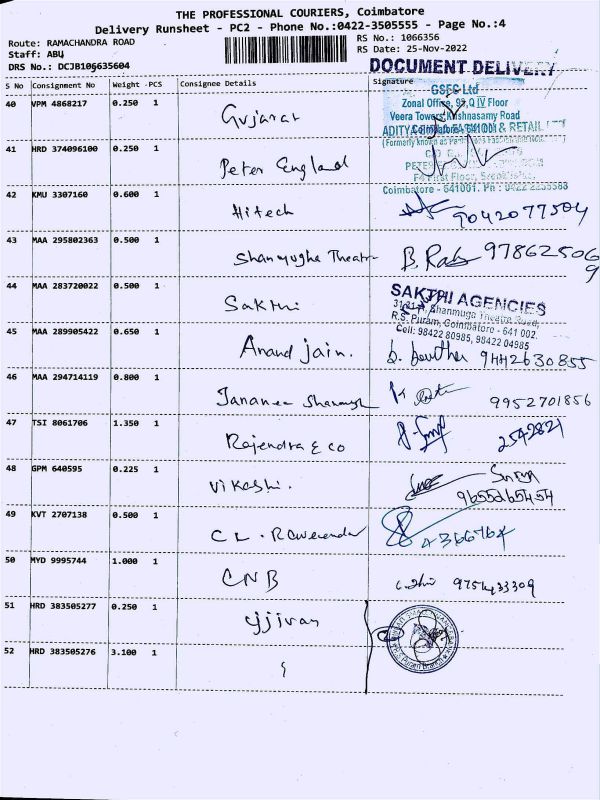 THE PROFESSIONAL COURIERS, Coimbatore
Delivery Runsheet - PC2 - Phone No.:0422-3505555 - Page No.:4
Route: RAMACHANDRA ROAD
RS No.: 1066356
Staff: ABU
RS Date: 25-Nov-2022
DRS No.: DCJB106635604
DOCUMENT DELIVERY
S No Consignment No Weight PCS Consignee Details Signature
GSFC Ltd
Zonal Office, 93,Q IV Floor
Veera Towers, Krishnasamy Road
Coimbatore - 641001
40 VPM 4868217 0.250 1 Gujarat
ADITYA & RETAIL
41 HRD 374096100 0.250 1 Peter England
First Floor,
Coimbatore - 641001. Ph : 0422
42 KMU 3307160 0.600 1 Hitech 9042077504
43 MAA 295802363 0.500 1 Shanmugha Theatre B. 9786250 69
44 MAA 283720022 0.500 1 Sakthi
SAKTHI AGENCIES
Shanmuga Theatre Road,
R.S. Puram, Coimbatore - 641 002.
Cell: 98422 80985, 98422 04985
45 MAA 289905422 0.650 1 Anand jain. 9442630855
46 MAA 294714119 0.800 1 Jananee 9952701856
47 TSI 8061706 1.350 1 Rajendra & co 2542821
48 GPM 640595 0.225 1 Vikashi. 9655265454
49 KVT 2707138 0.500 1 C L .
50 MYD 9995744 1.000 1 CNB
51 HRD 383505277 0.250 1 Ujjivan
52 HRD 383505276 3.100 1